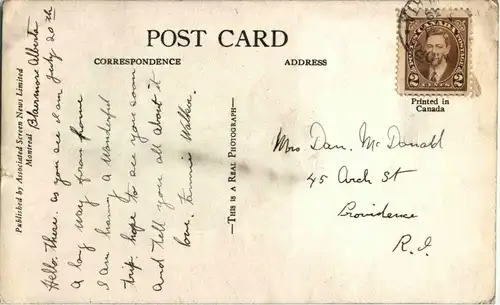 POST CARD
CORRESPONDENCE
ADDRESS
POSTES CANADA POSTAGE
2 CENTS 2
Printed in
Canada
Published by Associated Screen News Limited
Montreal
—THIS IS A REAL PHOTOGRAPH—
Alberta
July 20th
Hello there. as you see I am
a long way from home
I am having a wonderful
trip. hope to see you soon
and tell you all about it
love. Walker.
Mrs Dan. McDonald
45 Arch St
Providence
R.I.